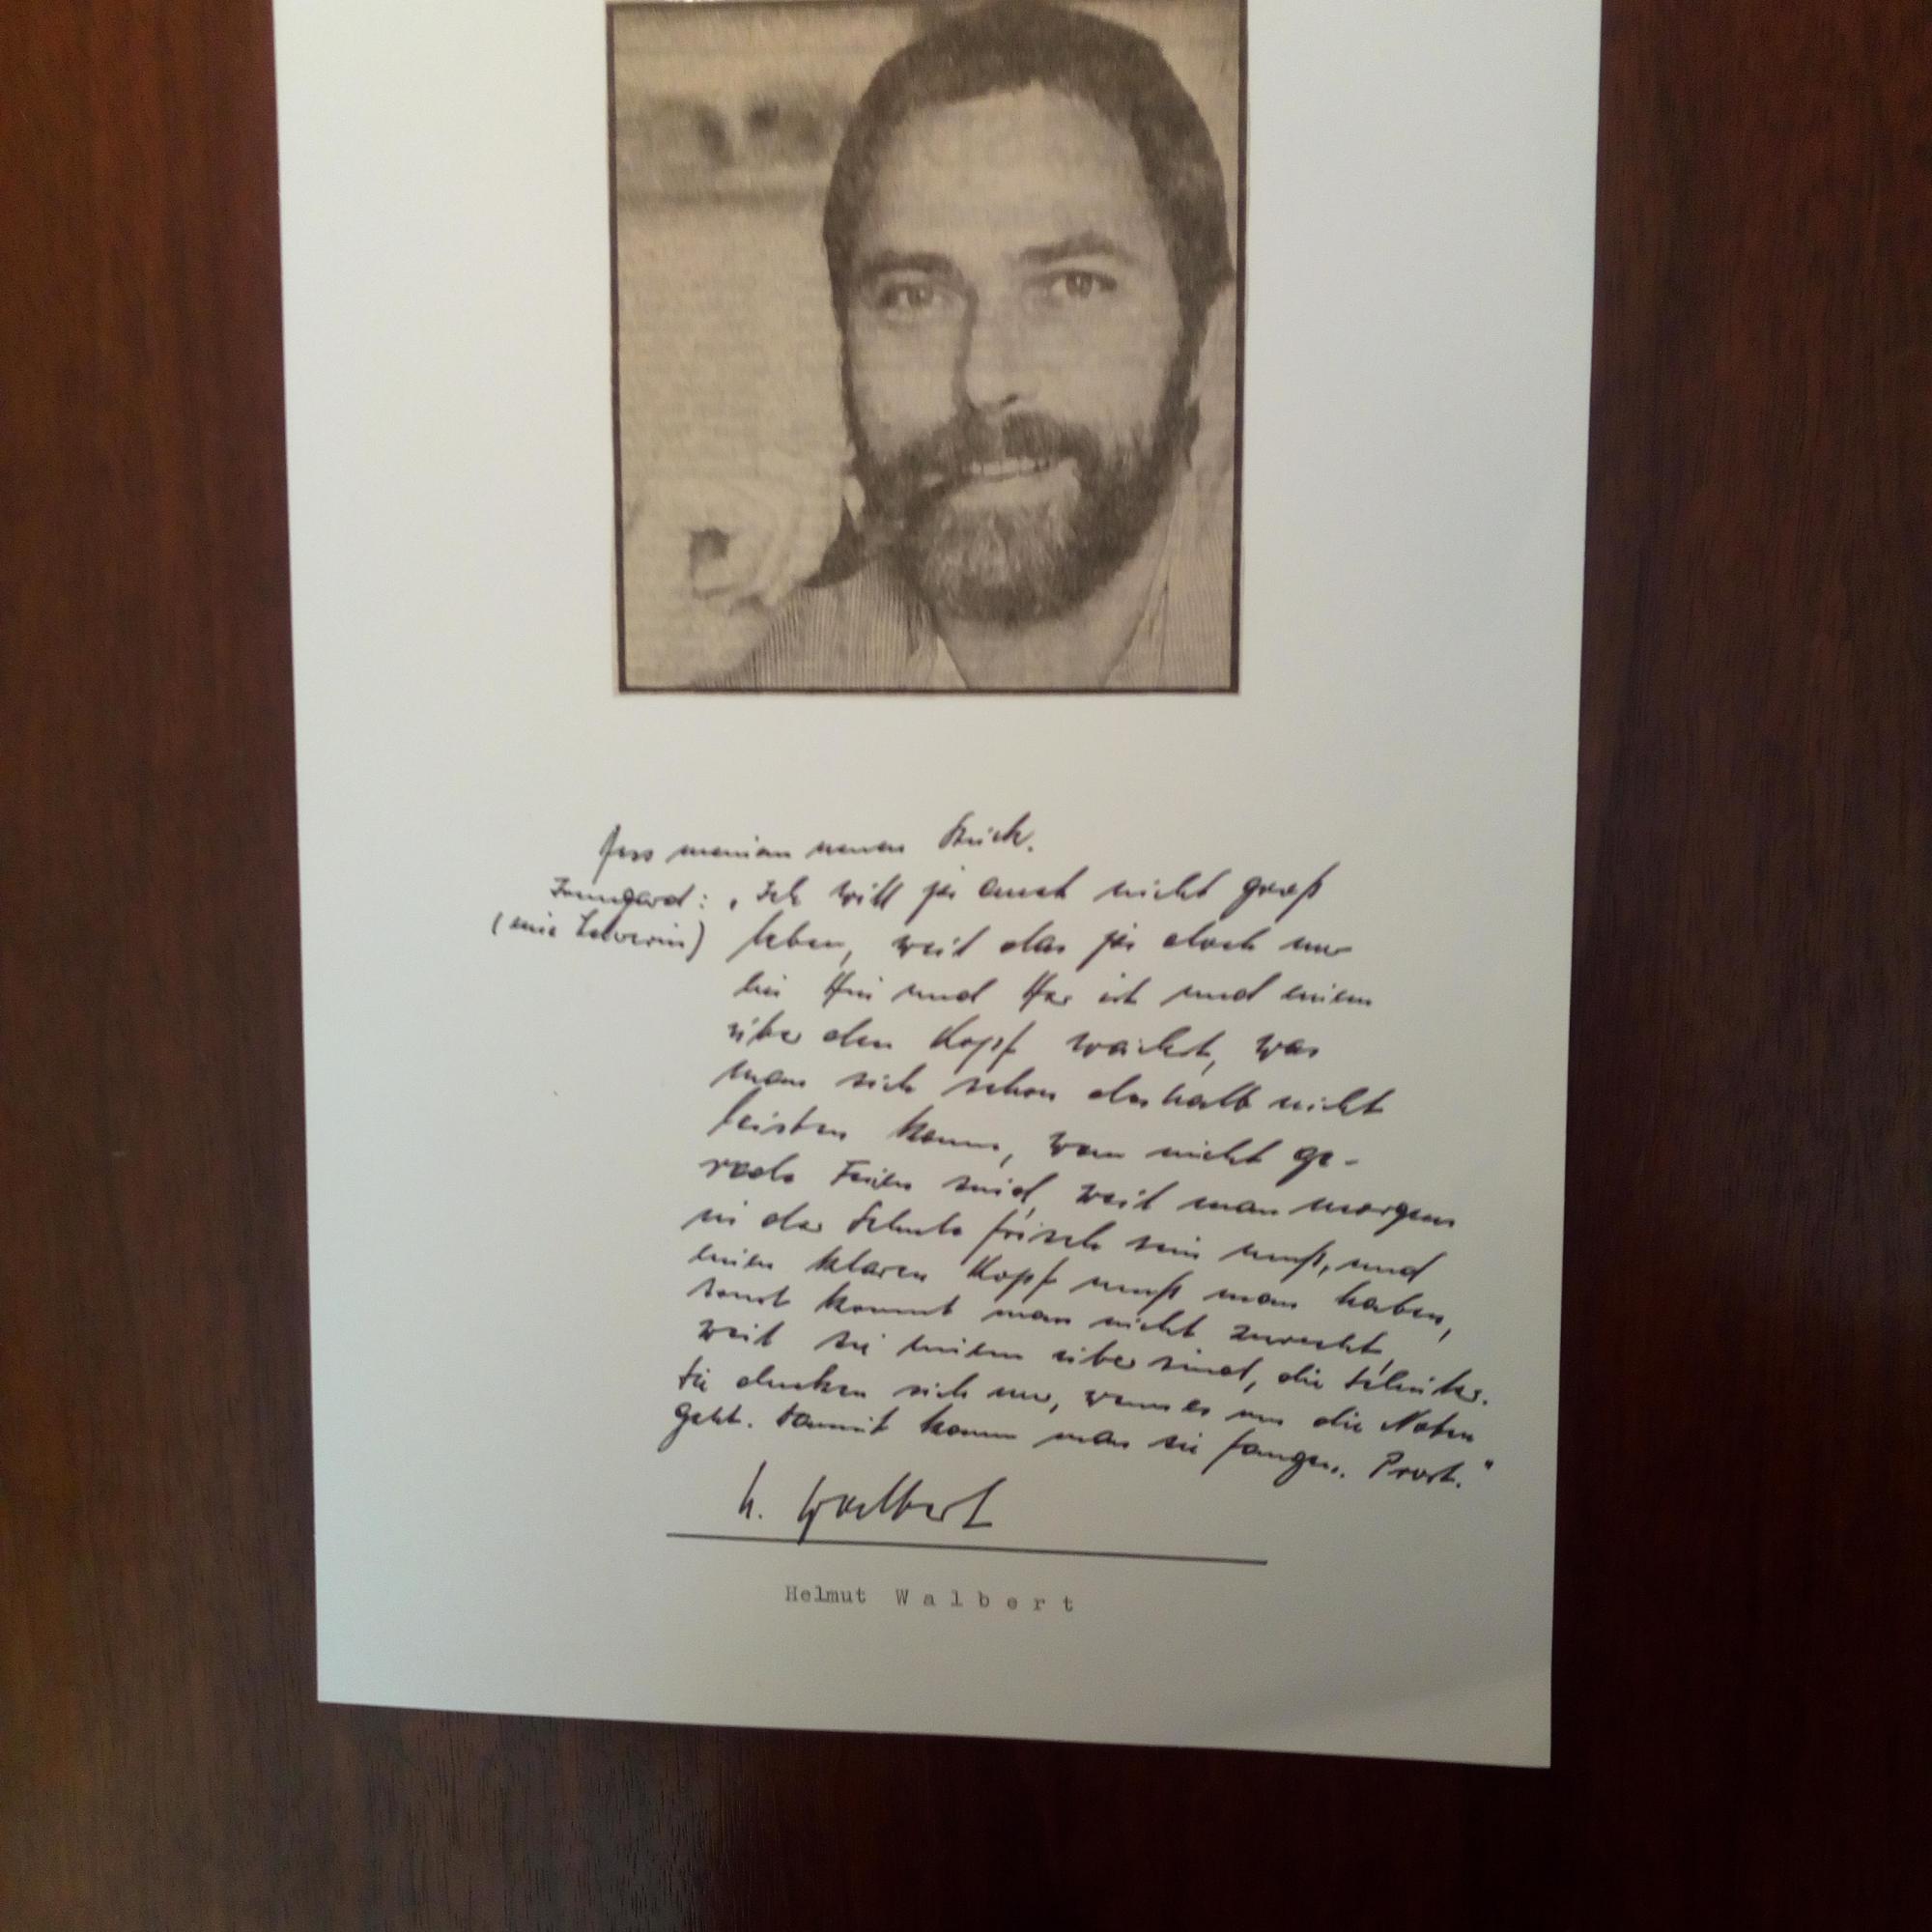 Aus meinem neuen Stück.
Irmgard: „Ich will ja auch nicht groß
(eine Lehrerin) leben, weil das ja doch nur
ein Hin und Her ist und einem
über den Kopf wächst, was
man sich schon deshalb nicht
leisten kann, wenn nicht ge-
rade Ferien sind, weil man morgens
in der Schule frisch sein muß, und
einen klaren Kopf muß man haben,
sonst kommt man nicht zurecht,
weil sie einem über sind, die Schüler.
Sie ducken sich nur, wenn es um die Noten
geht. Damit kann man sie fangen. Prost."
H. Walbert
Helmut Walbert